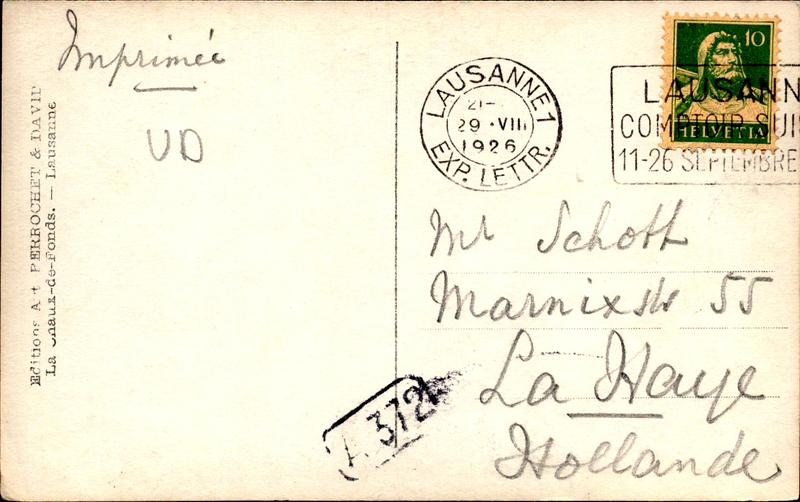 Imprimée
UD
Editions Art PERROCHET & DAVID
La Chaux-de-Fonds. — Lausanne
LAUSANNE 1
29 VIII
1926
EXP. LETTR.
10
HELVETIA
LAUSANN
COMPTOIR SUIS
11-26 SEPTEMBRE
Mr Schott
Marnixstr 55
La Haye
Hollande
A 372